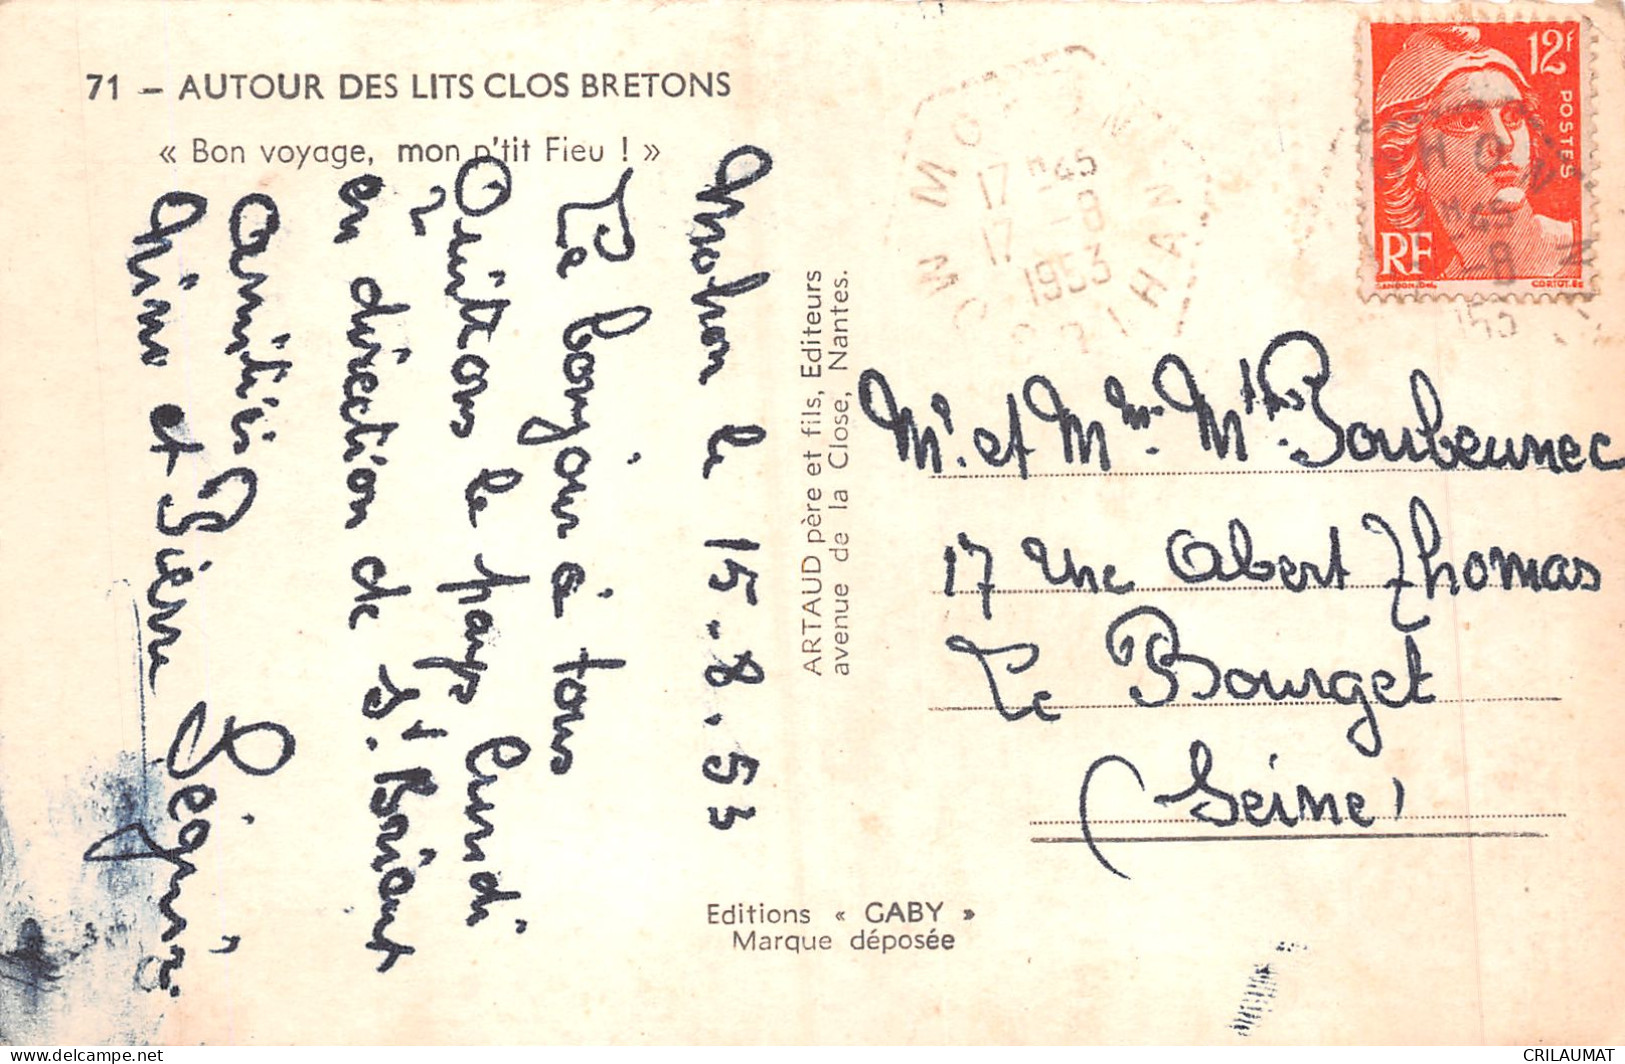 71 – AUTOUR DES LITS CLOS BRETONS
« Bon voyage, mon p'tit Fieu ! »
Mohon le 15.8.53
Le bonjour à tous
Quittons le pays lundi
en direction de St. Brieuc
Amitiés
et Pierre
ARTAUD père et fils, Editeurs
avenue de la Close, Nantes.
Editions « GABY »
Marque déposée
12F
POSTES
RF
GANDON.Del.
CORTOT.Sc
MOHON
17 H45
17 -8
1953
MORBIHAN
Mr. et Mme. Mt.
17 rue Abert Thomas
Le Bourget
(Seine)
CRILAUMAT
delcampe.net